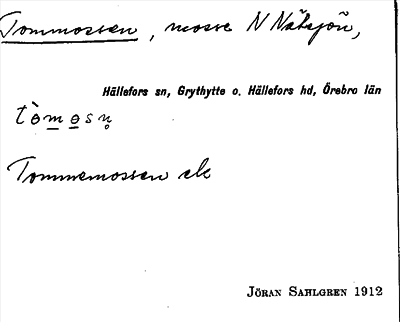 Tommossen, mosse N Näksjön,
Hällefors sn, Grythytte o. Hällefors hd, Örebro län
tòmosn̥
Tommemossen ek
JÖRAN SAHLGREN 1912